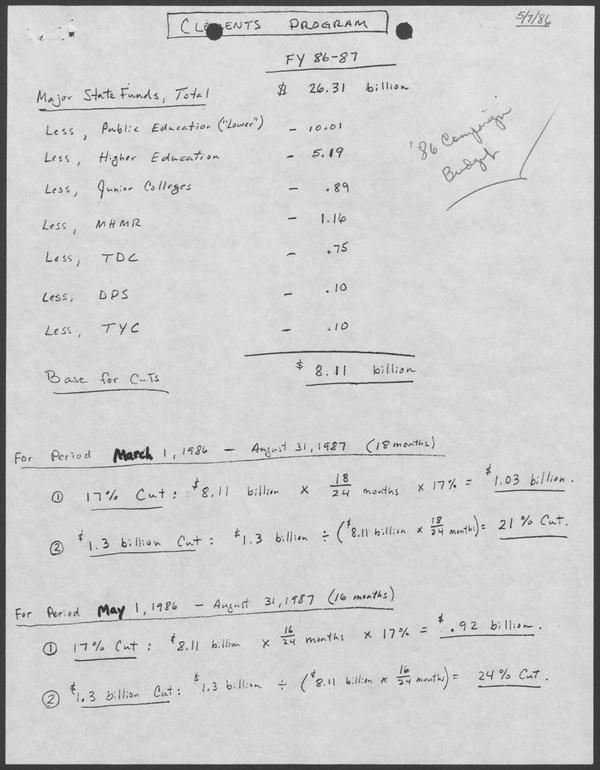 5/7/86
CLEMENTS PROGRAM
FY 86-87
Major State Funds, Total $ 26.31 billion
Less, Public Education ("Lower") - 10.01
Less, Higher Education - 5.19
Less, Junior Colleges - .89
Less, MHMR - 1.16
Less, TDC - .75
Less, DPS - .10
Less, TYC - .10
Base for Cuts $ 8.11 billion
'86 Campaign
Budget
For Period March 1, 1986 - August 31, 1987 (18 months)
① 17% Cut : $8.11 billion x 18/24 months x 17% = $1.03 billion.
② $1.3 billion Cut : $1.3 billion ÷ ($8.11 billion x 18/24 months) = 21% Cut.
For Period May 1, 1986 - August 31, 1987 (16 months)
① 17% Cut : $8.11 billion x 16/24 months x 17% = $.92 billion.
② $1.3 billion Cut : $1.3 billion ÷ ($8.11 billion x 16/24 months) = 24% Cut.